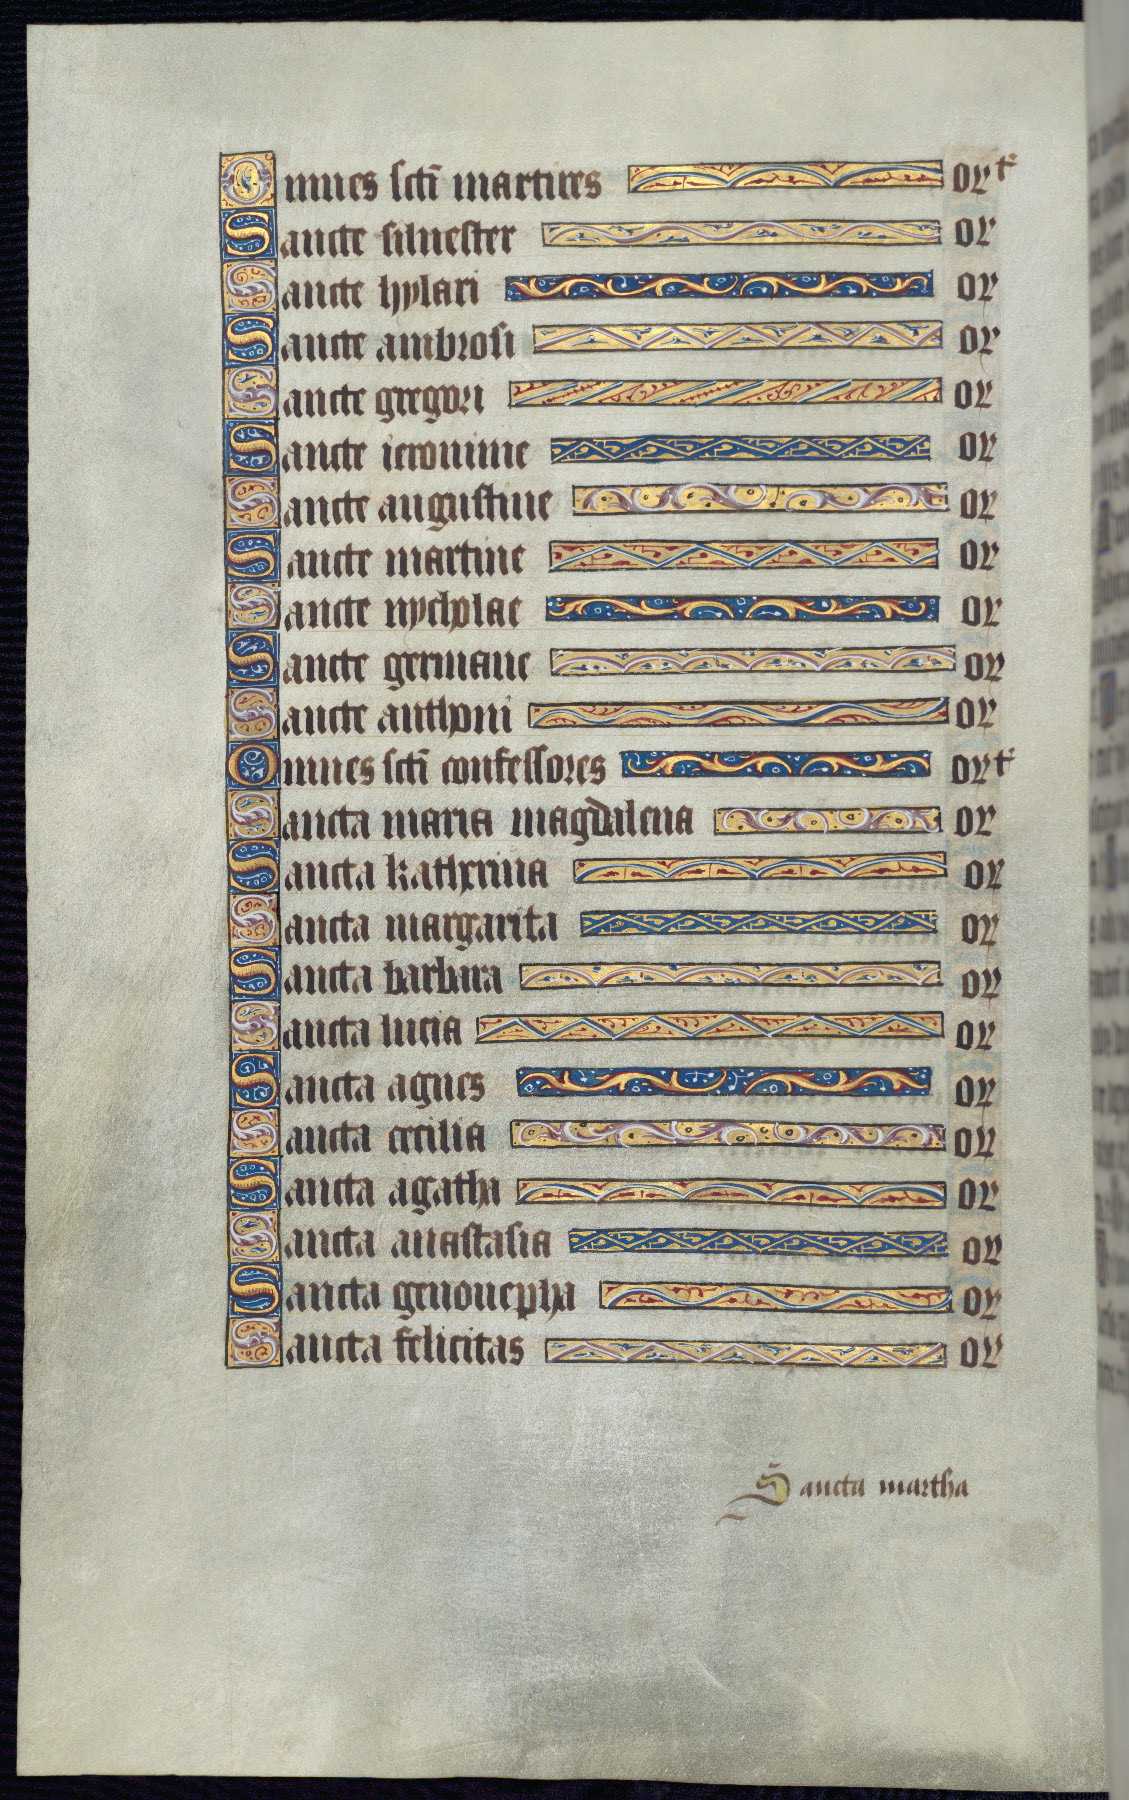 Omnes sctī martires orᵗ
Sancte siluester or
Sancte hylari or
Sancte ambrosi or
Sancte gregori or
Sancte ieronime or
Sancte augustine or
Sancte martine or
Sancte nycholae or
Sancte germane or
Sancte anthoni or
Omnes sctī confessores orᵗ
Sancta maria magdalena or
Sancta katherina or
Sancta margarita or
Sancta barbara or
Sancta lucia or
Sancta agnes or
Sancta cecilia or
Sancta agatha or
Sancta anastasia or
Sancta genouepha or
Sancta felicitas or
Sancta martha